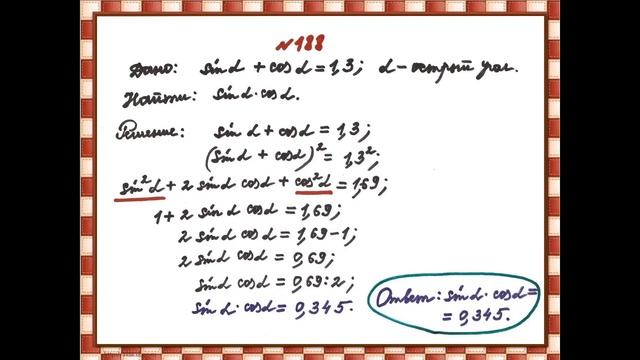 №188
Дано: sin d + cos d = 1,3; d – острый угол.
Найти: sin d · cos d.
Решение: sin d + cos d = 1,3;
(sin d + cos d)² = 1,3²;
sin² d + 2 sin d cos d + cos² d = 1,69;
1 + 2 sin d cos d = 1,69;
2 sin d cos d = 1,69 – 1;
2 sin d cos d = 0,69;
sin d cos d = 0,69 : 2;
sin d · cos d = 0,345.
Ответ: sin d · cos d =
= 0,345.